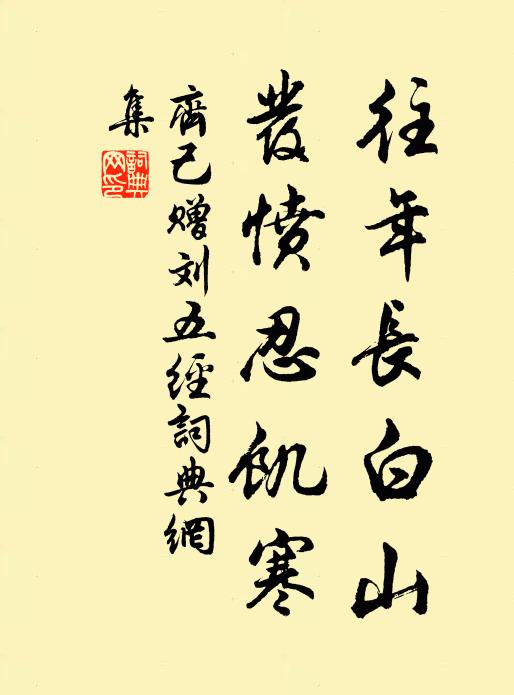 往年長白山
發憤忍飢寒
齊己赠刘五經詞典網
集
詞典网印